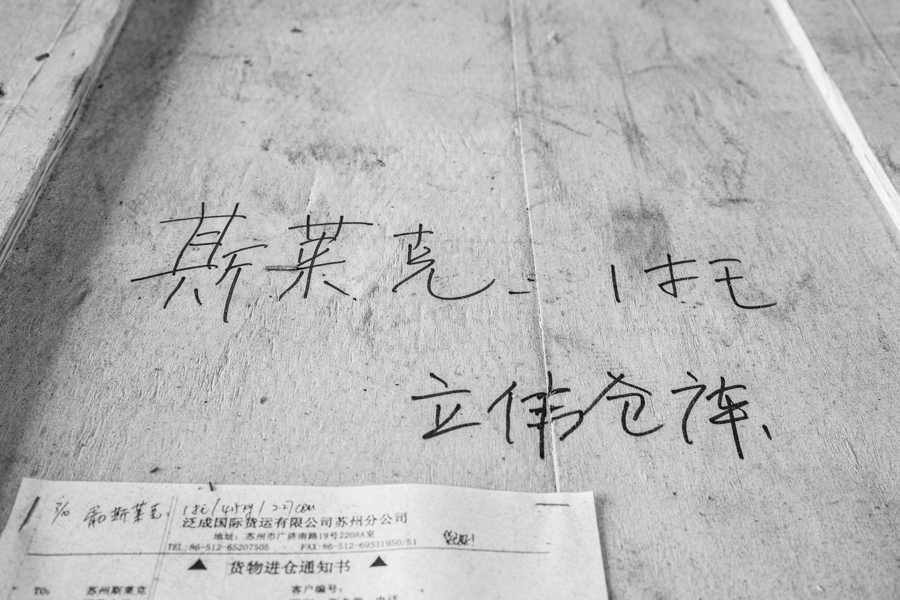 斯莱克. 1托
立伟仓库.
斯莱克 1托/
泛成国际货运有限公司苏州分公司
地址: 苏州市广济南路19号2208A室
TEL:86-512-65207505 FAX:86-512-69331950/51
▲ 货物进仓通知书 ▲
TO: 苏州斯莱克 客户编号: